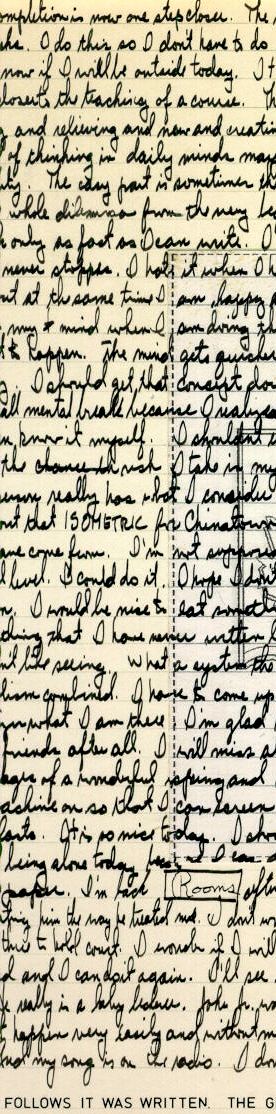 ompletion is now one step closer. The
she. I do this so I don't have to do
now if I will be outside today. It
closer to the teaching of a course. Th
and relieving and new and creati
of thinking in daily minds mar
ity. The easy part is sometimes th
whole dilemma from the very be
k only as fast as I can write. I
never stopped. I hate it when I h
nt at the same time I am happy
my mind when I am doing th
t to happen. The mind gets quicker
I should get that concept dow
all mental breaks because I realize
n know it myself. I shouldn't
the chance risk I take in my
erson really has what I conside
out that ISOMETRIC for Chinatown
ave come from. I'm not suppose
level. I could do it. I hope I don't
n. I would be nice to eat somet
thing that I have never written
n't like seeing. What a system the
lism combined. I have to come up
m what I am there. I'm glad
friends after all. I will miss a
ears of a wonderful spring and
achine on so that I can screen
forts. It is so nice today. I sho
being alone today I can
paper. I'm fact Rooms afte
him the way he treated me. I don't wo
this to hold court. I wonder if I will
d and I can do it again. I'll see
really is a baby
t happen very easily and without m
nd my song is on the radio. I do
FOLLOWS IT WAS WRITTEN. THE G